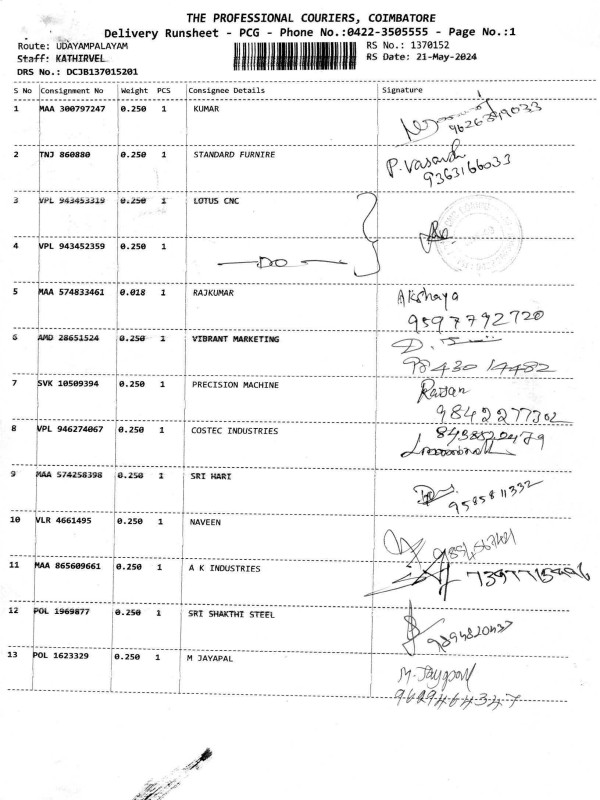 THE PROFESSIONAL COURIERS, COIMBATORE
Delivery Runsheet - PCG - Phone No.:0422-3505555 - Page No.:1
Route: UDAYAMPALAYAM RS No.: 1370152
Staff: KATHIRVEL RS Date: 21-May-2024
DRS No.: DCJB137015201
S No Consignment No Weight PCS Consignee Details Signature
1 MAA 300797247 0.250 1 KUMAR
9626349033
2 TNJ 860880 0.250 1 STANDARD FURNIRE P. Vasanth
9363166033
3 VPL 943453319 0.250 1 LOTUS CNC
4 VPL 943452359 0.250 1
DO
5 MAA 574833461 0.018 1 RAJKUMAR Akshaya
9597792720
6 AMD 28651524 0.250 1 VIBRANT MARKETING
98430 14482
7 SVK 10509394 0.250 1 PRECISION MACHINE Rajan
9842277302
8 VPL 946274067 0.250 1 COSTEC INDUSTRIES 8438520479
9 MAA 574258398 0.250 1 SRI HARI
9585811332
10 VLR 4661495 0.250 1 NAVEEN
11 MAA 865609661 0.250 1 A K INDUSTRIES
12 POL 1969877 0.250 1 SRI SHAKTHI STEEL
9894820437
13 POL 1623329 0.250 1 M JAYAPAL M. Jaypaul
9629464347